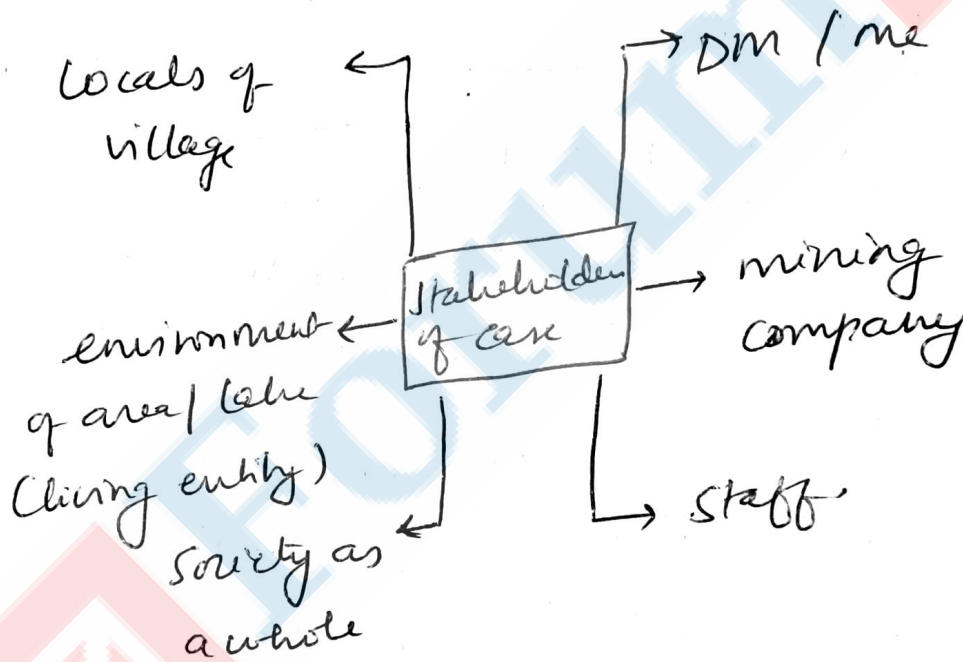 Locals of
village
DM / me
Stakeholders
of case
mining
company
environment
of area / lake
(living entity)
Staff
Society as
a whole
Forum